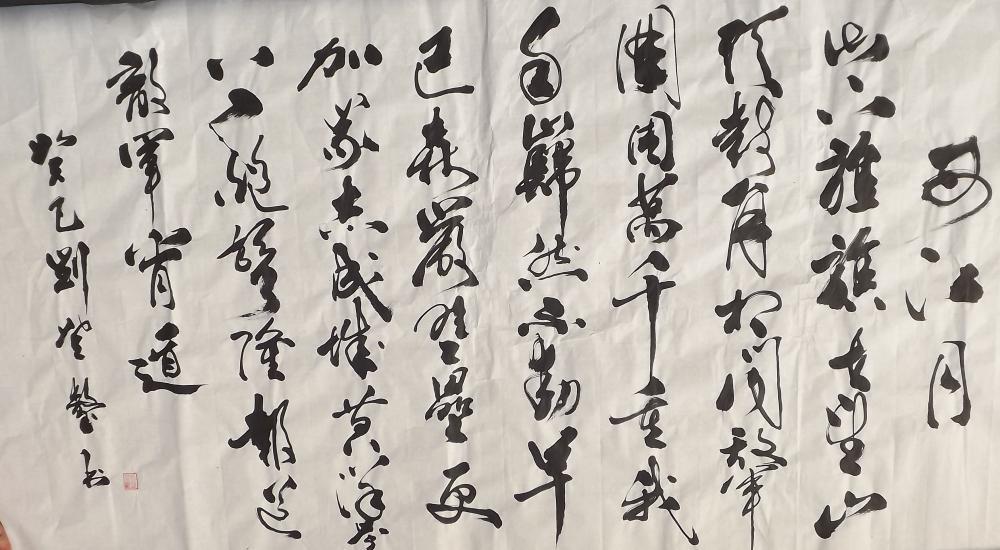 西江月
山下旌旗在望山
頭鼓角相闻敵軍
圍困萬千重我
自巋然不動早
已森嚴壁壘更
加衆志成城黄洋界
上炮聲隆報道
敵軍宵遁
癸巳劉登书